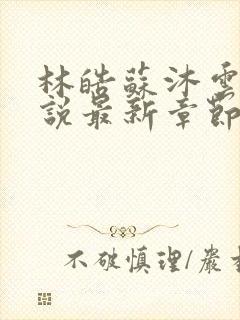 林皓蘇沐雲
說最新章節
不破慎理/嚴